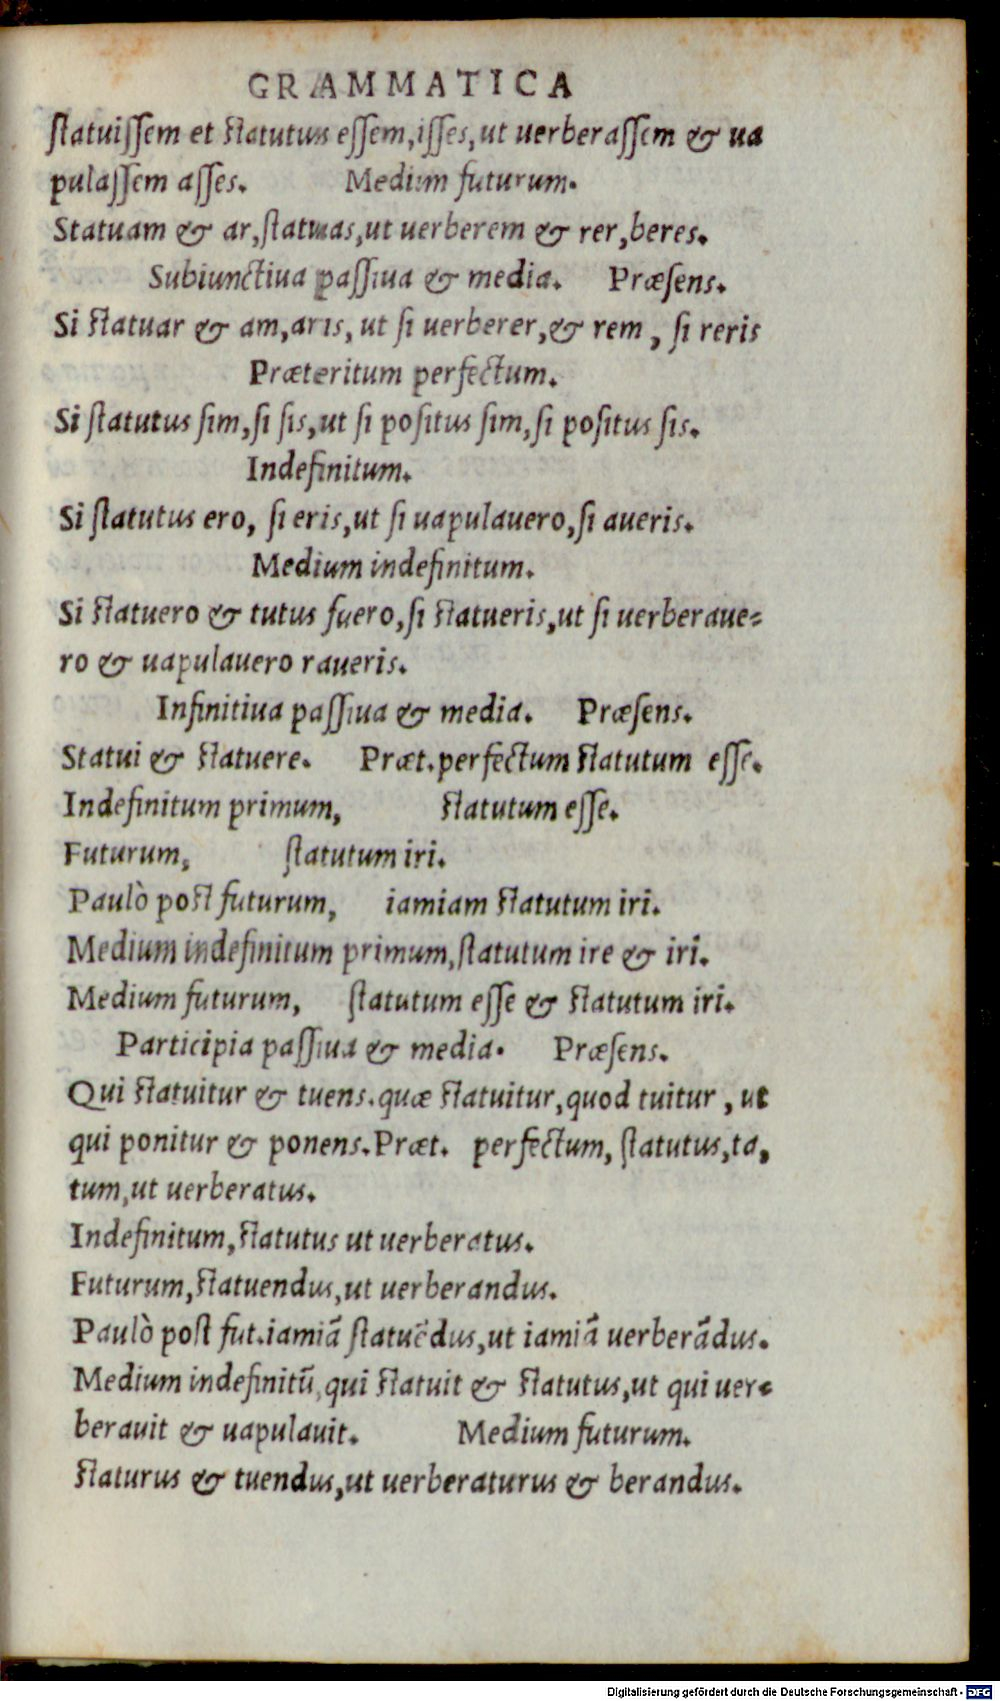 GRAMMATICA
ſtatuiſſem et ſtatutus eſſem,iſſes,ut uerberaſſem & ua
pulaſſem aſſes. Medium futurum.
Statuam & ar,ſtatuas,ut uerberem & rer,beres.
Subiunctiua paſſiua & media. Præſens.
Si ſtatuar & am,aris, ut ſi uerberer,& rem , ſi reris
Præteritum perfectum.
Si ſtatutus ſim,ſi ſis,ut ſi poſitus ſim,ſi poſitus ſis.
Indefinitum.
Si ſtatutus ero, ſi eris,ut ſi uapulauero,ſi aueris.
Medium indefinitum.
Si ſtatuero & tutus fuero,ſi ſtatueris,ut ſi uerberaue-
ro & uapulauero raueris.
Infinitiua paſſiua & media. Præſens.
Statui & ſtatuere. Præt.perfectum ſtatutum eſſe.
Indefinitum primum, ſtatutum eſſe.
Futurum, ſtatutum iri.
Paulò poſt futurum, iamiam ſtatutum iri.
Medium indefinitum primum,ſtatutum ire & iri.
Medium futurum, ſtatutum eſſe & ſtatutum iri.
Participia paſſiua & media. Præſens.
Qui ſtatuitur & tuens.quæ ſtatuitur,quod tuitur , ut
qui ponitur & ponens.Præt. perfectum, ſtatutus,ta,
tum,ut uerberatus.
Indefinitum,ſtatutus ut uerberatus.
Futurum,ſtatuendus,ut uerberandus.
Paulò poſt fut.iamiã ſtatuẽdus,ut iamiã uerberãdus.
Medium indefinitũ,qui ſtatuit & ſtatutus,ut qui uer-
berauit & uapulauit. Medium futurum.
ſtaturus & tuendus,ut uerberaturus & berandus.
Digitalisierung gefördert durch die Deutsche Forschungsgemeinschaft - DFG